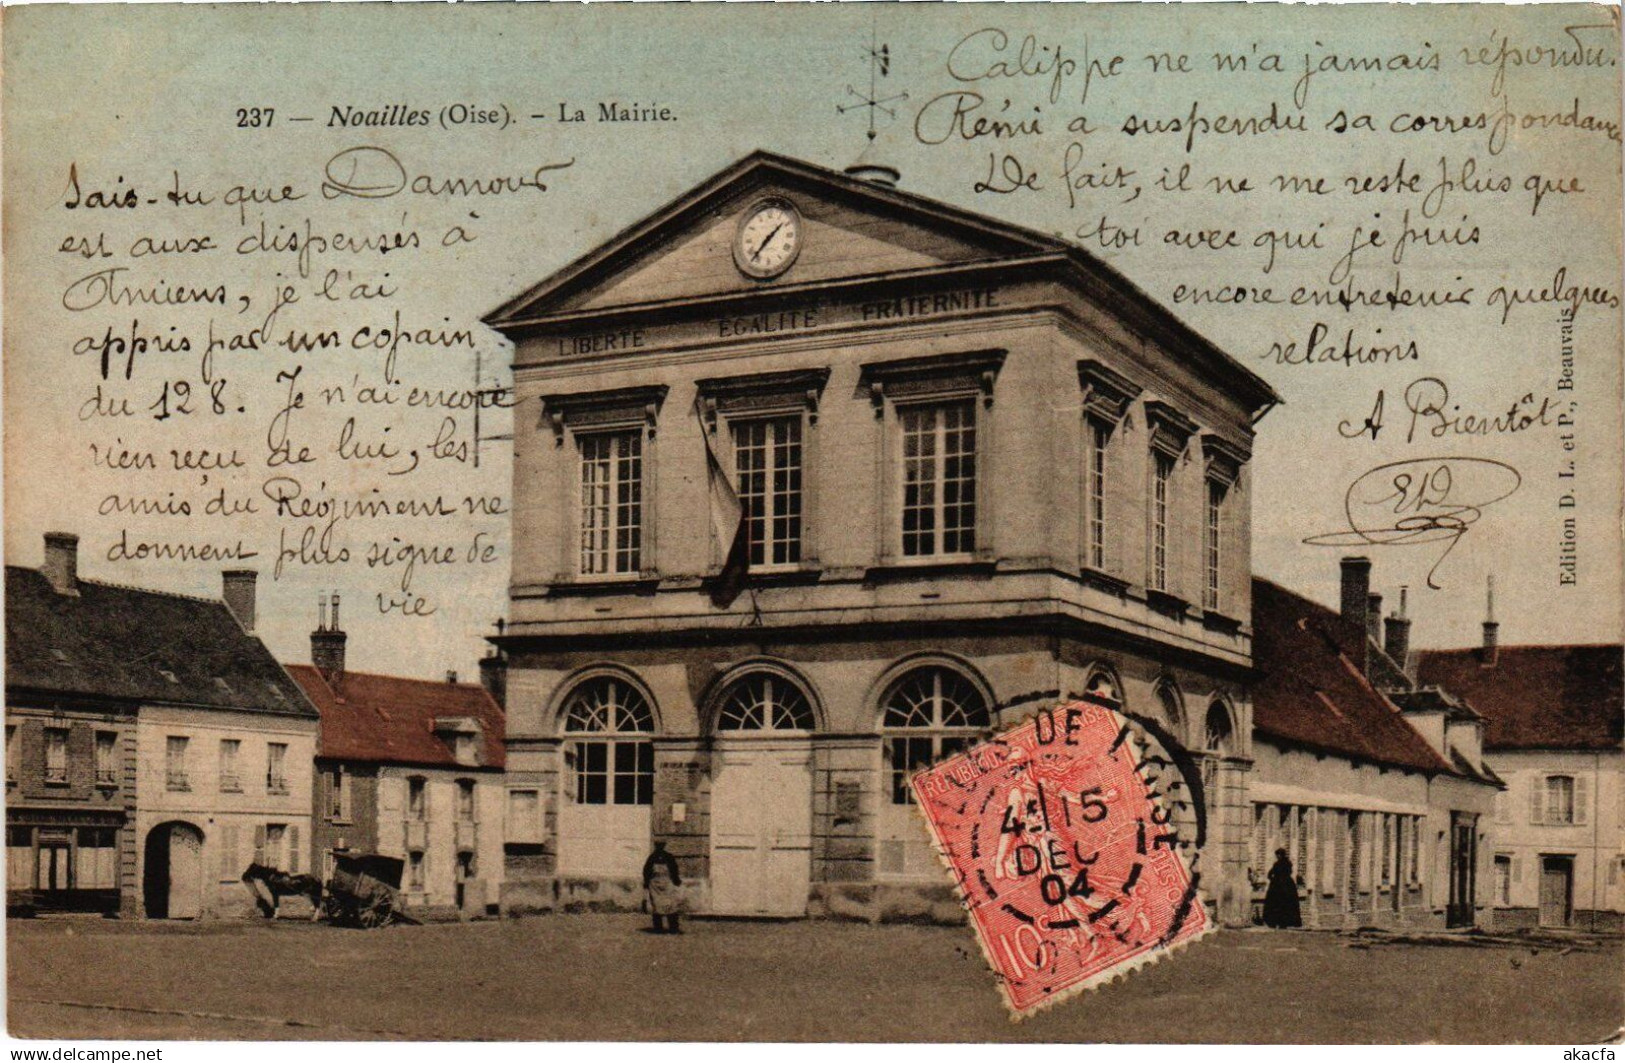 237 — Noailles (Oise). - La Mairie.
Sais-tu que Damour
est aux dispensés à
Amiens, je l'ai
appris par un copain
du 128. Je n'ai encore
rien reçu de lui, les
amis du Régiment ne
donnent plus signe de
vie
Calippe ne m'a jamais répondu.
Rémi a suspendu sa correspondance
De fait, il ne me reste plus que
toi avec qui je puis
encore entretenir quelques
relations
A Bientôt
LIBERTE EGALITE FRATERNITE
Edition D. L. et P., Beauvais
REPUBLIQUE FRANÇAISE
4 15
DEC
04
10
delcampe.net
akacfa